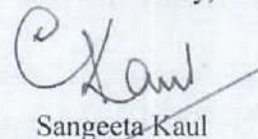 CKaul
Sangeeta Kaul